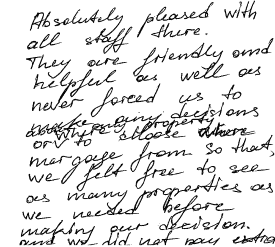 Absolutely pleased with
all staff there.
They are friendly and
helpful as well as
never forced us to
make any decisions
or to choose where
morgage from so that,
we felt free to see
as many properties as
we needed before
making our decision.
and we did not pay